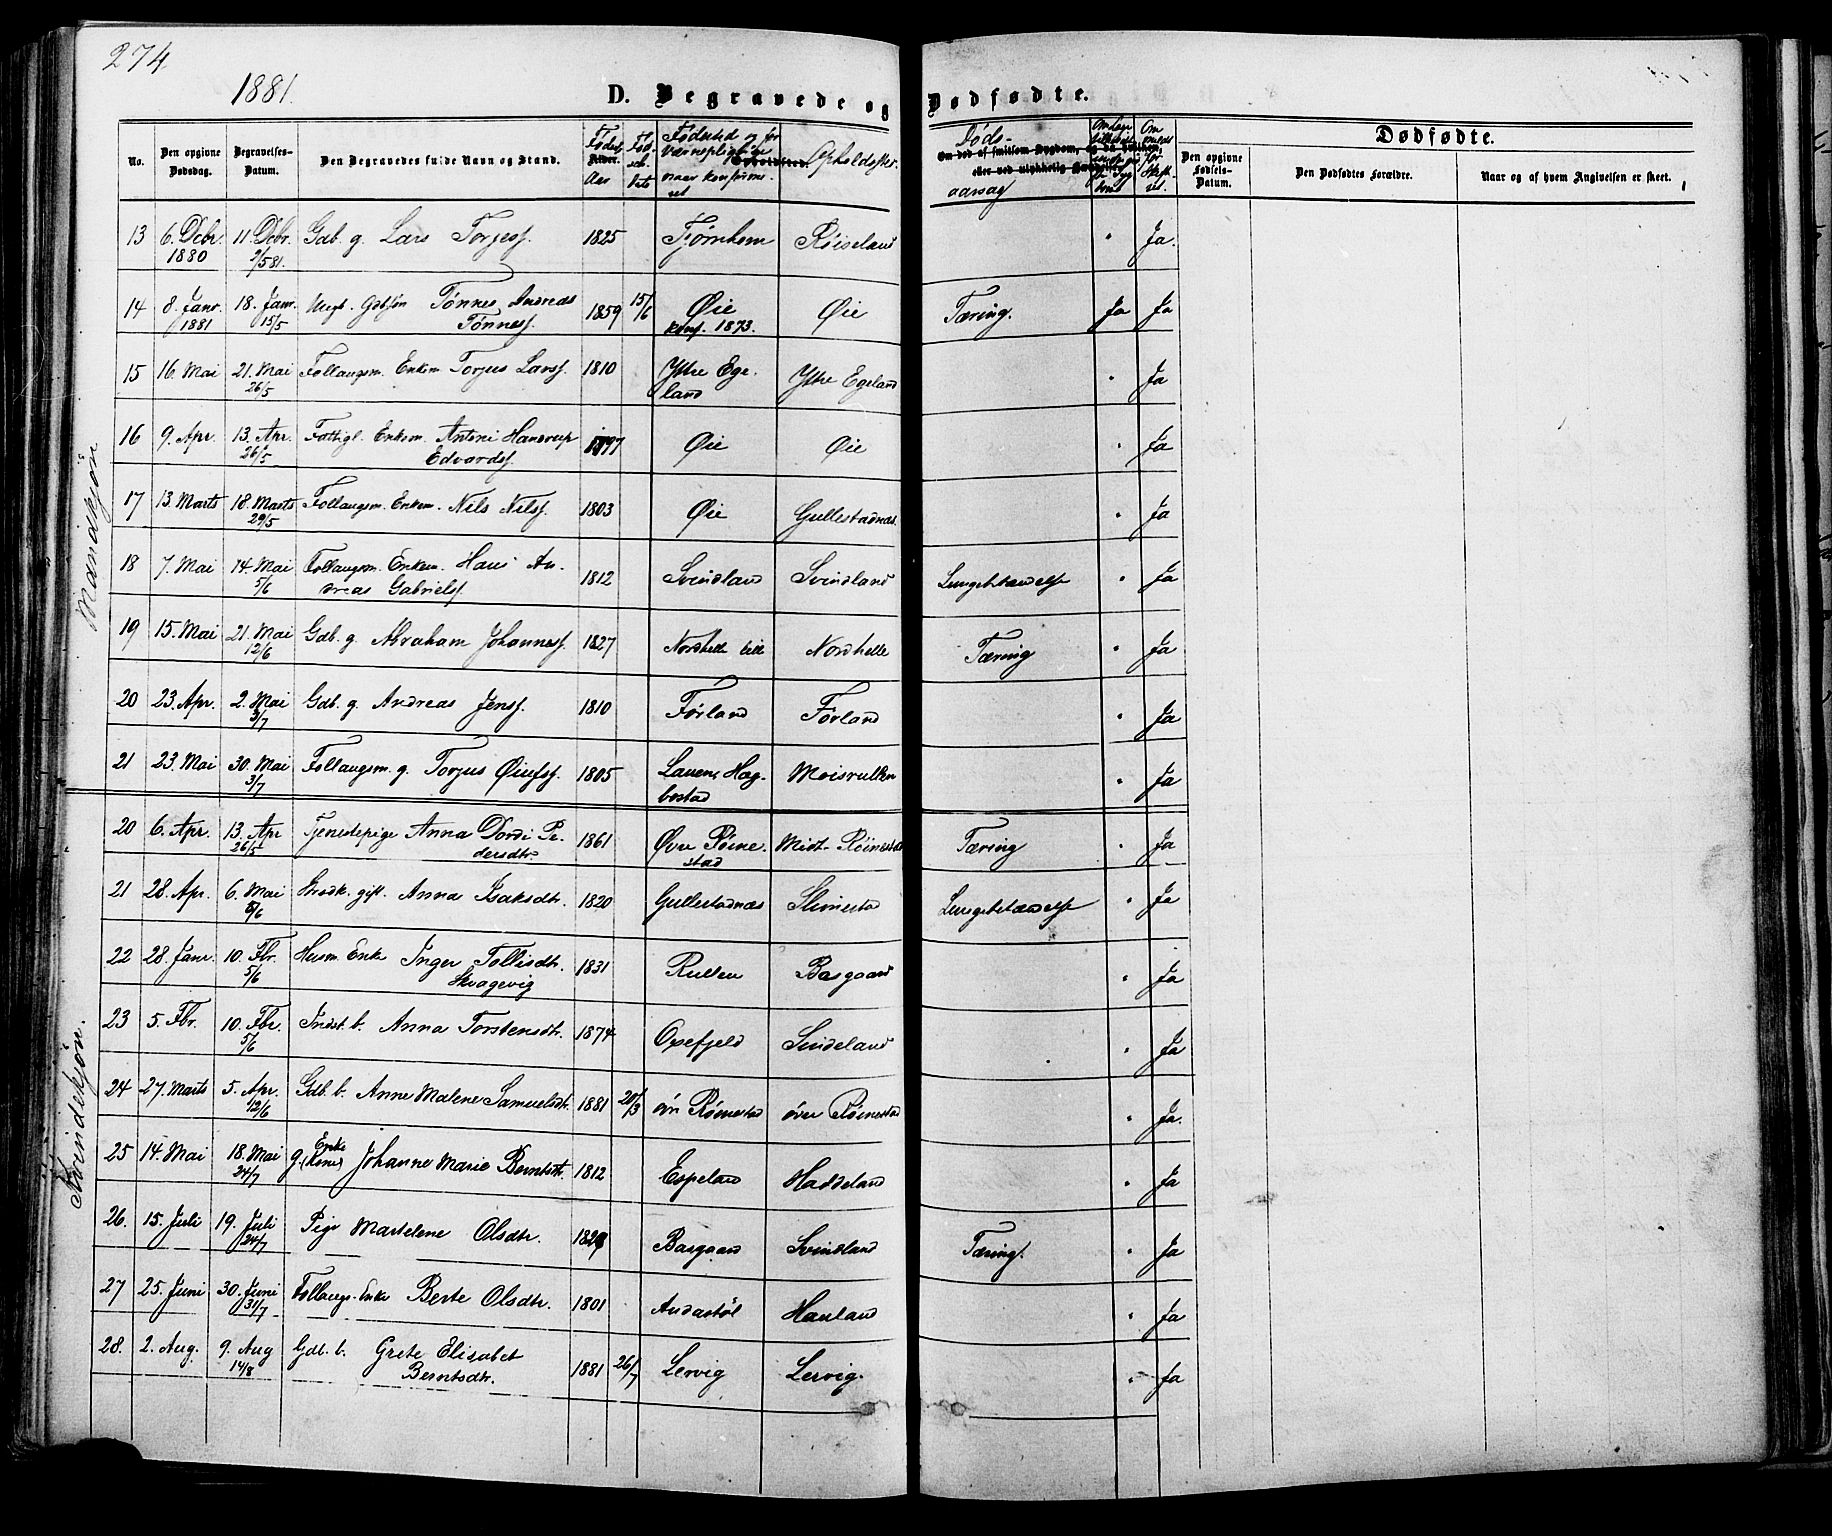 274
1881.
D. Begravede og Dødfødte.
No. Den opgivne Dødsdag. Begravelses-Datum. Den Begravedes fulde Navn og Stand. Føds. Aar Fødested og for Værnepligtige naar konfirmeret Opholdssted. Døds-aarsag Dødfødte.
Den opgivne Fødsels-Datum. Den Dødfødtes Forældre. Naar og af hvem Angivelsen er skeet.
Mandkjøn
13 6. Dcbr. 1880 11. Dcbr. 2/5 81. Gdb. g. Lars Torjess. 1825 Tjørnhom Røiseland " Ja.
14 8. Janr. 1881 18. Janr. 15/5 Ungk. Gdbsøn Tønnes Andreas Tønness. 1859 15/6 Øie konf. 1873. Øie Tæring. Ja Ja
15 16. Mai 21. Mai 26/5 Follaugsm. Enkem Torjus Larss. 1810 Ytre Egeland Ytre Egeland " Ja
16 9. Apr. 13. Apr. 26/5 Fattigl. Enkem. Antoni Handrup Edvards. 1797 Øie Øie " Ja
17 13. Marts 18. Marts 29/5 Follaugsm. Enkem. Nils Nilss. 1803 Øie Gullestadnæs " Ja
18 7. Mai 14. Mai 5/6 Follaugsm. Enkem. Hans Andreas Gabriels. 1812 Svindland Svindland Lungebetændelse " Ja
19 15. Mai 21. Mai 12/6 Gdb. g. Abraham Johanness. 1827 Nordhelle lille Nordhelle Tæring " Ja
20 23. Apr. 2. Mai 3/7 Gdb. g. Andreas Jenss. 1810 Førland Førland " Ja
21 23. Mai 30. Mai 3/7 Follaugsm. g. Torjus Øiufss. 1805 Lauen, Hægbostad Moisrullen " Ja
Kvindekjøn.
20 6. Apr. 13. Apr 26/5 Tjenestepige Anna Dordi Pedersdtr. 1861 Øvre Røinestad Midt-Røinestad Tæring " Ja
21 28. Apr. 6. Mai 5/6 gift. Anna Isaksdtr. 1820 Gullestadnæs Slimestad Lungebetændelse " Ja
22 28. Janr. 10. Fbr. 5/6 Husm. Enke Inger Tollisdtr. Skvagevig 1831 Rullen Basgaard " Ja
23 5. Fbr. 10. Fbr. 5/6 Indst. b. Anna Torstensdtr. 1874 Oxefjeld Sindeland " Ja
24 27. Marts 5. Apr. 12/6 Gdb. b. Anne Malene Samuelsdtr. 1881 20/3 øvr Røinestad øver Røinestad " Ja.
25 14. Mai 18. Mai 24/7 g. Enke (Kone) Johanne Marie Berntsdtr. 1812 Espeland Haddeland " Ja
26. 15. Juli 19. Juli 24/7 Pige Martelene Olsdtr. 1829 Basgaard Svindland Tæring. " Ja
27 25. Juni 30. Juni 31/7 Follaugs-Enke Berte Olsdtr. 1801 Audastøl Hauland " Ja
28. 2. Aug. 9. Aug 14/8 Gdb. b. Grete Elisabet Berntsdtr. 1881 26/7 Lervig Lervig. " Ja